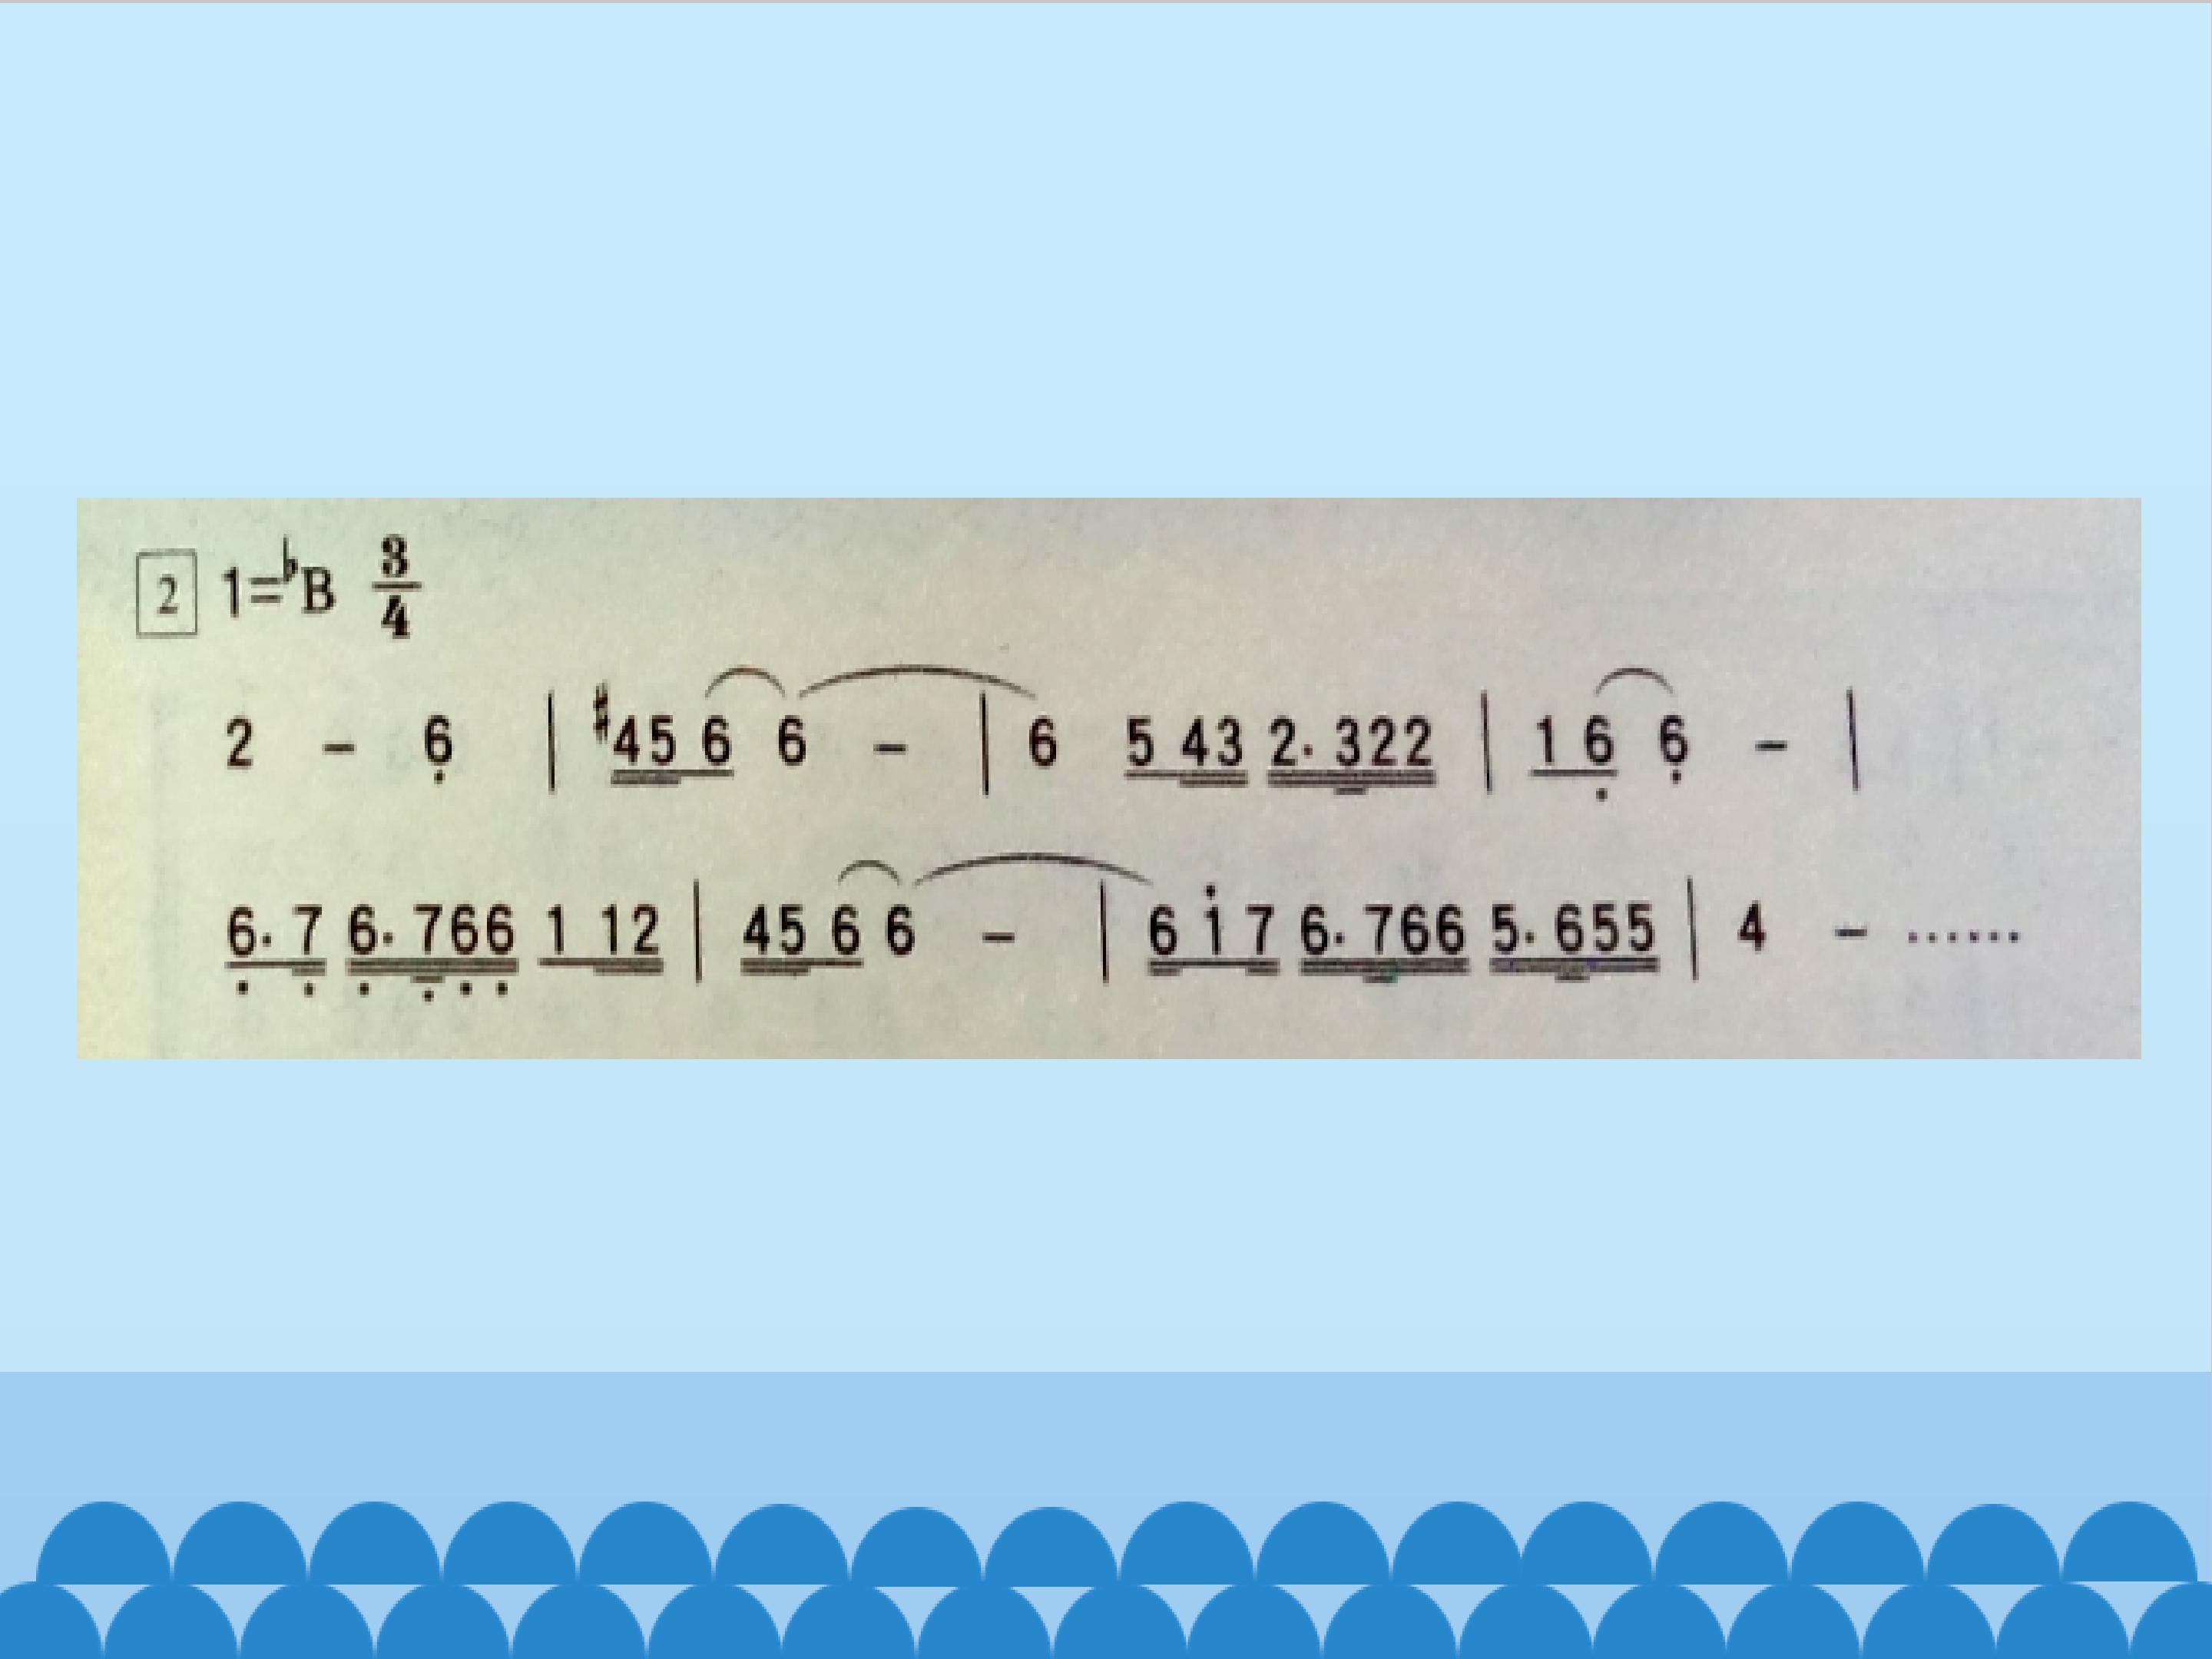 2 1=♭B 3/4
2 - 6̣ | ♯45 6 6 - | 6 5 43 2· 322 | 1 6̣ 6̣ - |
6̣· 7̣ 6̣· 7̣6̣6̣ 1 12 | 45 6 6 - | 6 1̇ 7 6· 766 5· 655 | 4 - ······